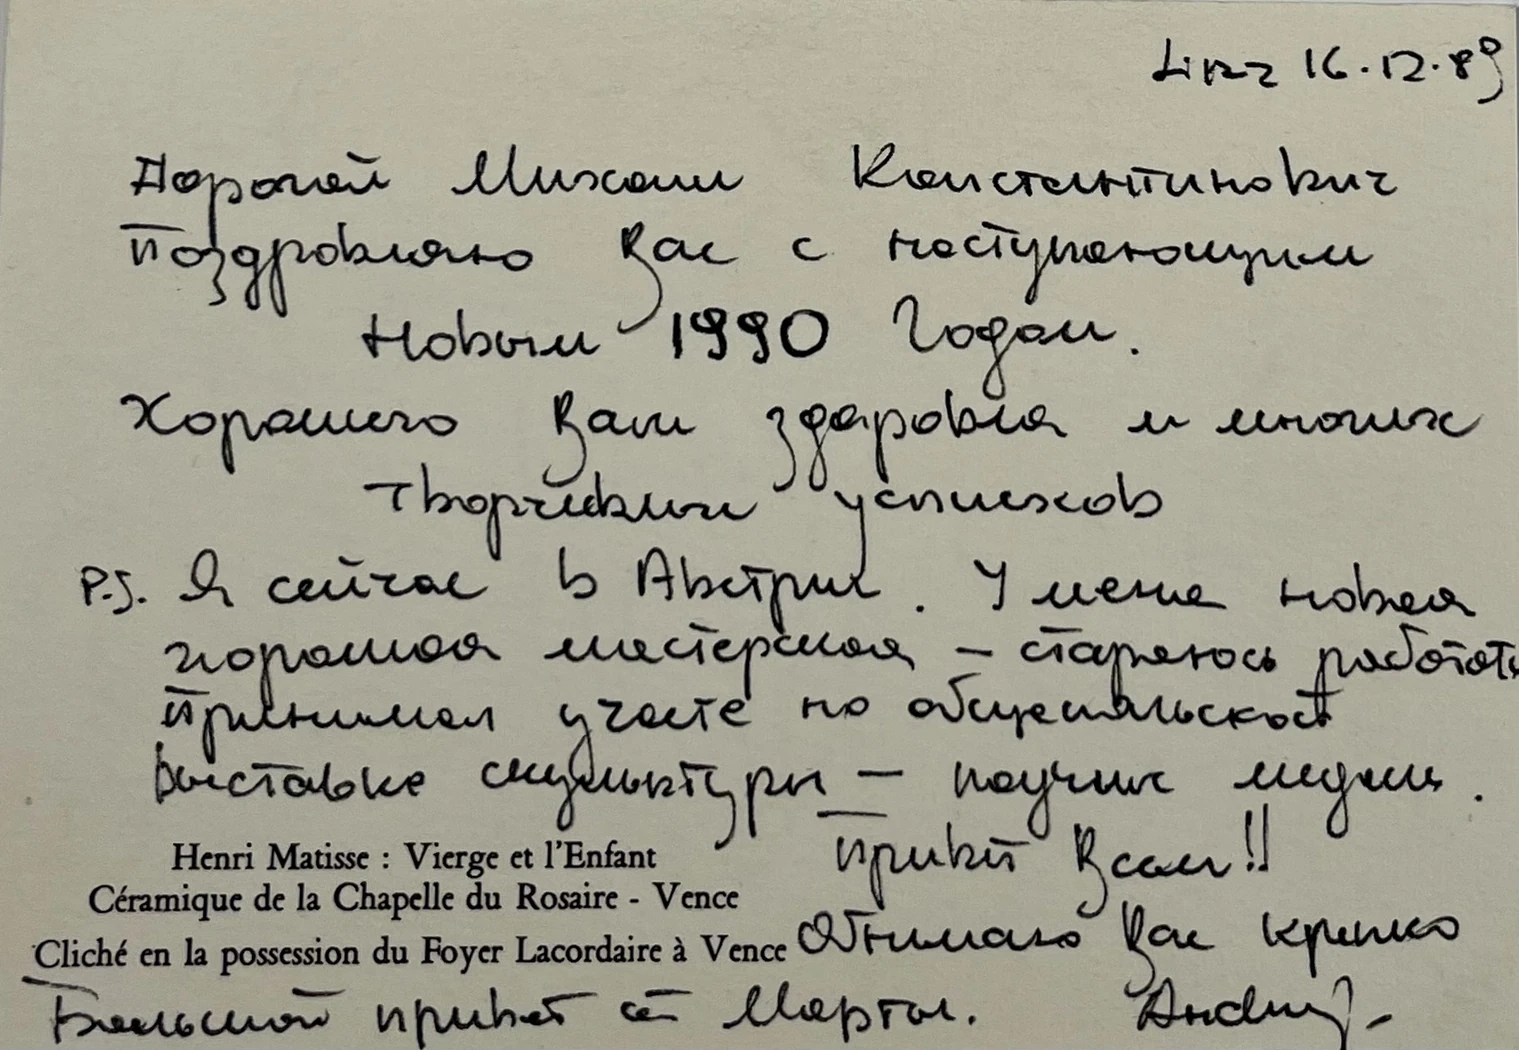 Linz 16.12.89
Дорогой Михаил Константинович
Поздровляю Вас с наступающим
Новым 1990 Годом.
Хорошего Вам здаровля и многих
творчевих успихов
P.S. Я сейчас в Австрии. У меня новая
хорошая мастерская – стараюсь работать
Принимал участе но общепольской
выставке скульптуры – получил медаль.
Привет Всем!!
Henri Matisse : Vierge et l'Enfant
Céramique de la Chapelle du Rosaire - Vence
Cliché en la possession du Foyer Lacordaire à Vence
Обнимаю Вас крепко
Большой привет от Марты. Andrzej.